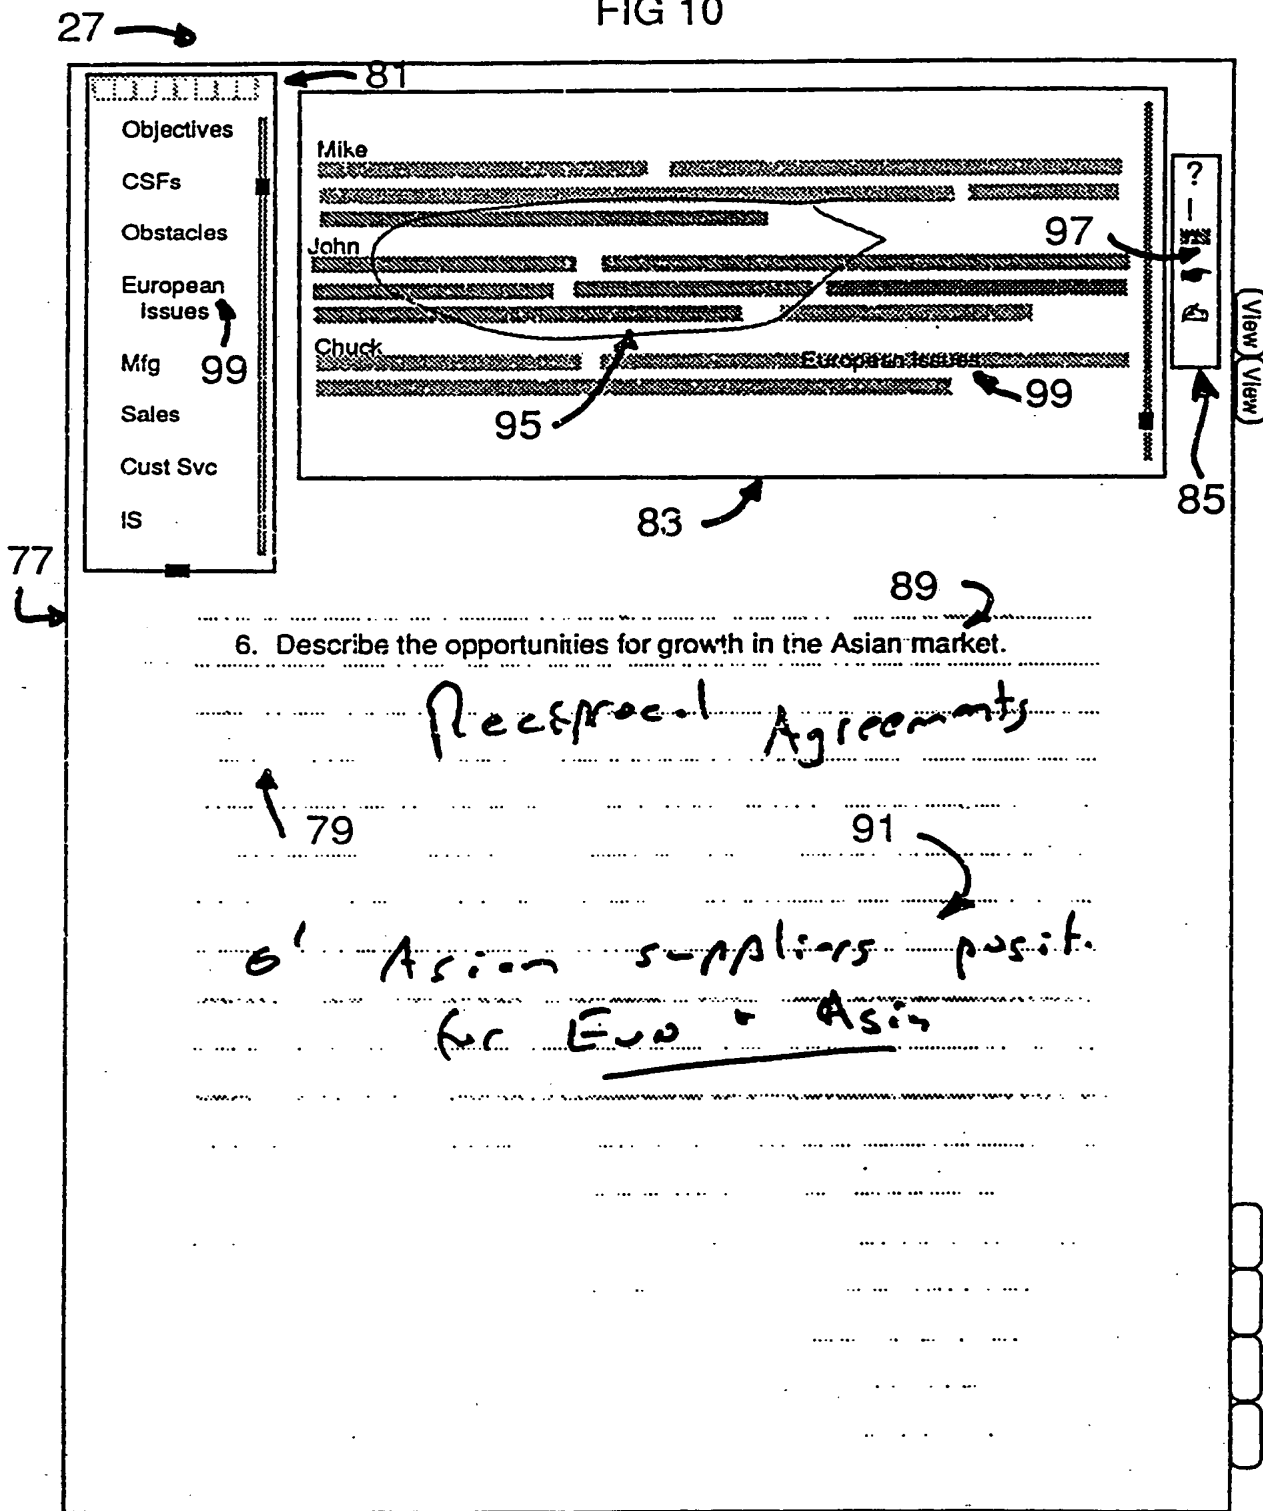 FIG 10
27
81
Objectives
CSFs
Obstacles
European
Issues
99
Mfg
Sales
Cust Svc
IS
Mike
John
Chuck
European Issues
99
95
83
?
97
85
View
View
77
89
6. Describe the opportunities for growth in the Asian market.
Reciprocal Agreements
79
91
Asian suppliers posit.
for Euro + Asia